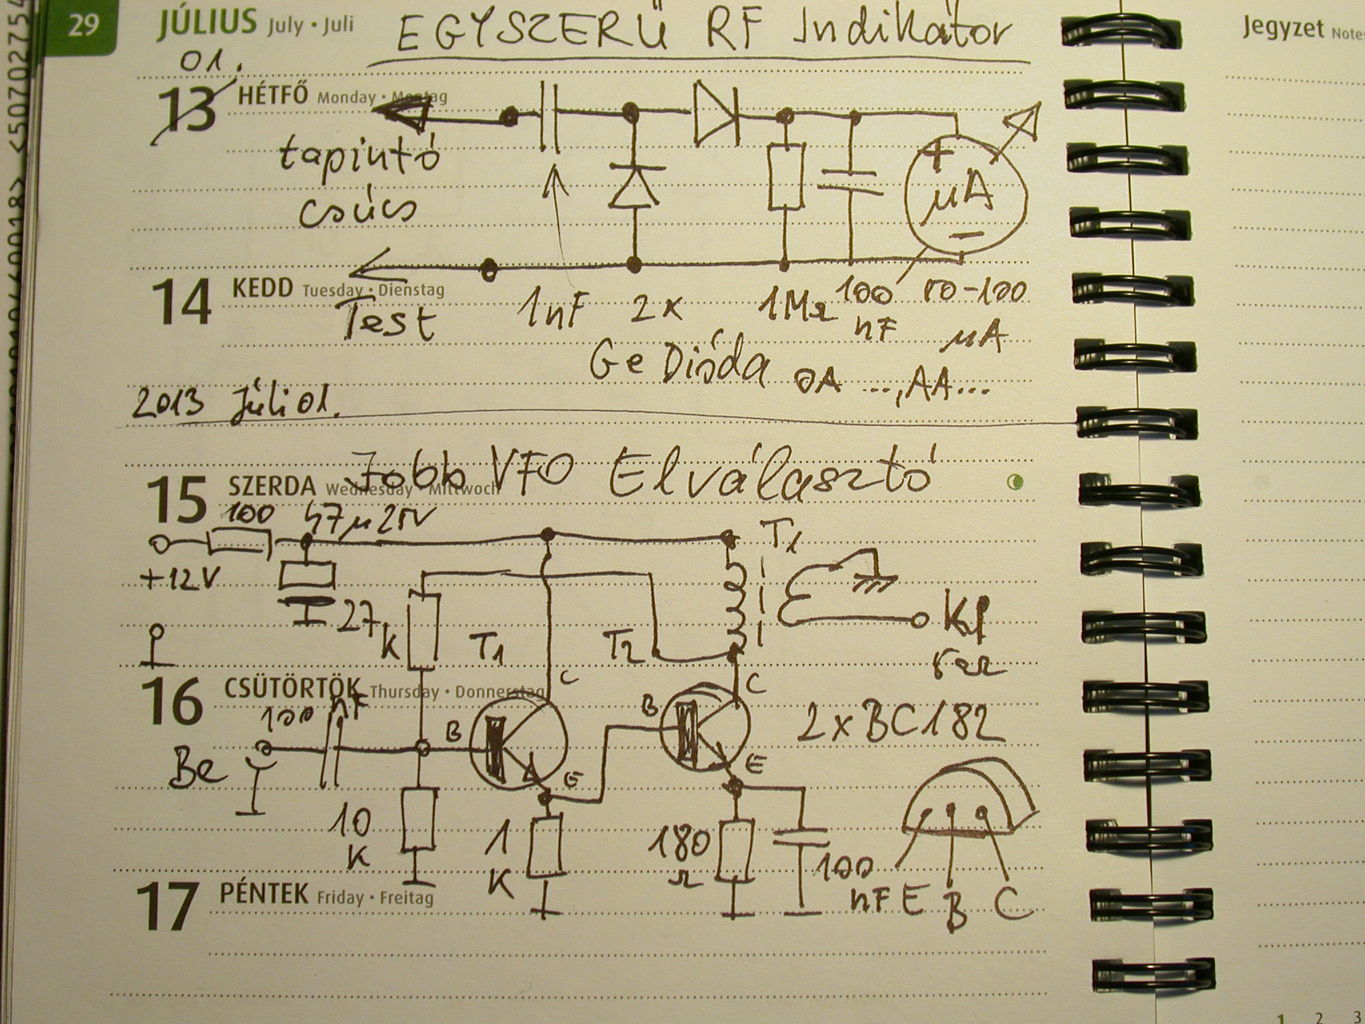 29
JÚLIUS July • Juli
EGYSZERŰ RF Indikátor
Jegyzet Notes
01.
13 HÉTFŐ Monday • Montag
tapintó
csúcs
+
µA
–
14 KEDD Tuesday • Dienstag
Test
1nF 2x 1MΩ 100 nF 50-100 µA
Ge Dióda OA ...,AA...
2013 Júli 01.
Jobb VFO Elválasztó
15 SZERDA Wednesday • Mittwoch
100 47µ 25V T1
+12V
27k
T1 T2
C C
16 CSÜTÖRTÖK Thursday • Donnerstag
100 nF
B B
Be
E E
2xBC182
10 K
1 K
180 Ω
100 nF
E B C
17 PÉNTEK Friday • Freitag
1 2 3